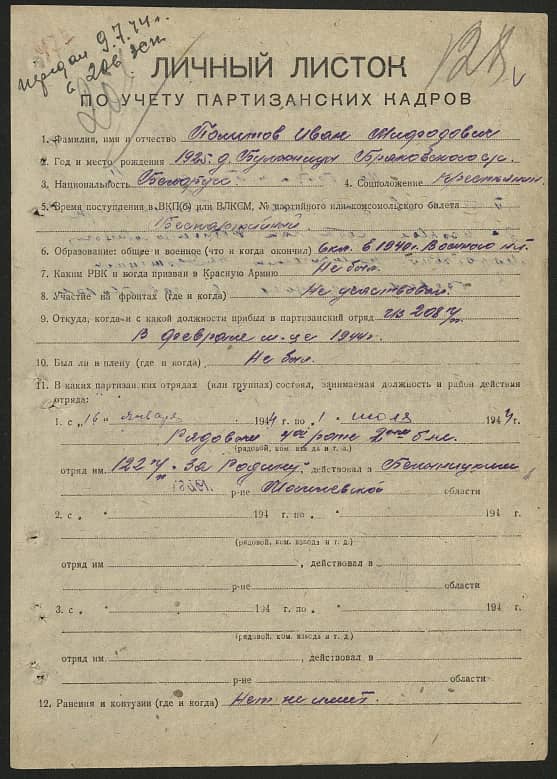 передан 9.7.44г.
128
ЛИЧНЫЙ ЛИСТОК
ПО УЧЕТУ ПАРТИЗАНСКИХ КАДРОВ
1. Фамилия, имя и отчество Политов Иван
2. Год и место рождения 1925 д.
3. Национальность Белорус 4. Соцположение Крестьянин
5. Время поступления в ВКП(б) или ВЛКСМ, № партийного или комсомольского билета
Беспартийный
6. Образование: общее и военное (что и когда окончил) 6 кл. в 1940 г. Военного нет
7. Каким РВК и когда призван в Красную Армию Не был.
8. Участие на фронтах (где и когда) Не участвовал.
9. Откуда, когда и с какой должности прибыл в партизанский отряд из 208 п/п
В феврале м-це 1944г.
10. Был ли в плену (где и когда) Не был.
11. В каких партизанских отрядах (или группах) состоял, занимаемая должность и район действия
отряда:
1. с „16“ января 1944 г. по „1“ июля 1944 г.
Рядовым 4ой роте 2ого б-на.
(рядовой, ком. взвода и т. д.)
отряд им. 122 п/п „За Родину“, действовал в Белыницком
р-не Могилевской области
2. с „ “ 194 г. по „ “ 194 г.
(рядовой, ком. взвода и т. д.)
отряд им. , действовал в
р-не области
3. с „ “ 194 г. по „ “ 194 г.
(рядовой, ком. взвода и т. д.)
отряд им. , действовал в
р-не области
12. Ранения и контузии (где и когда) Нет не имет.